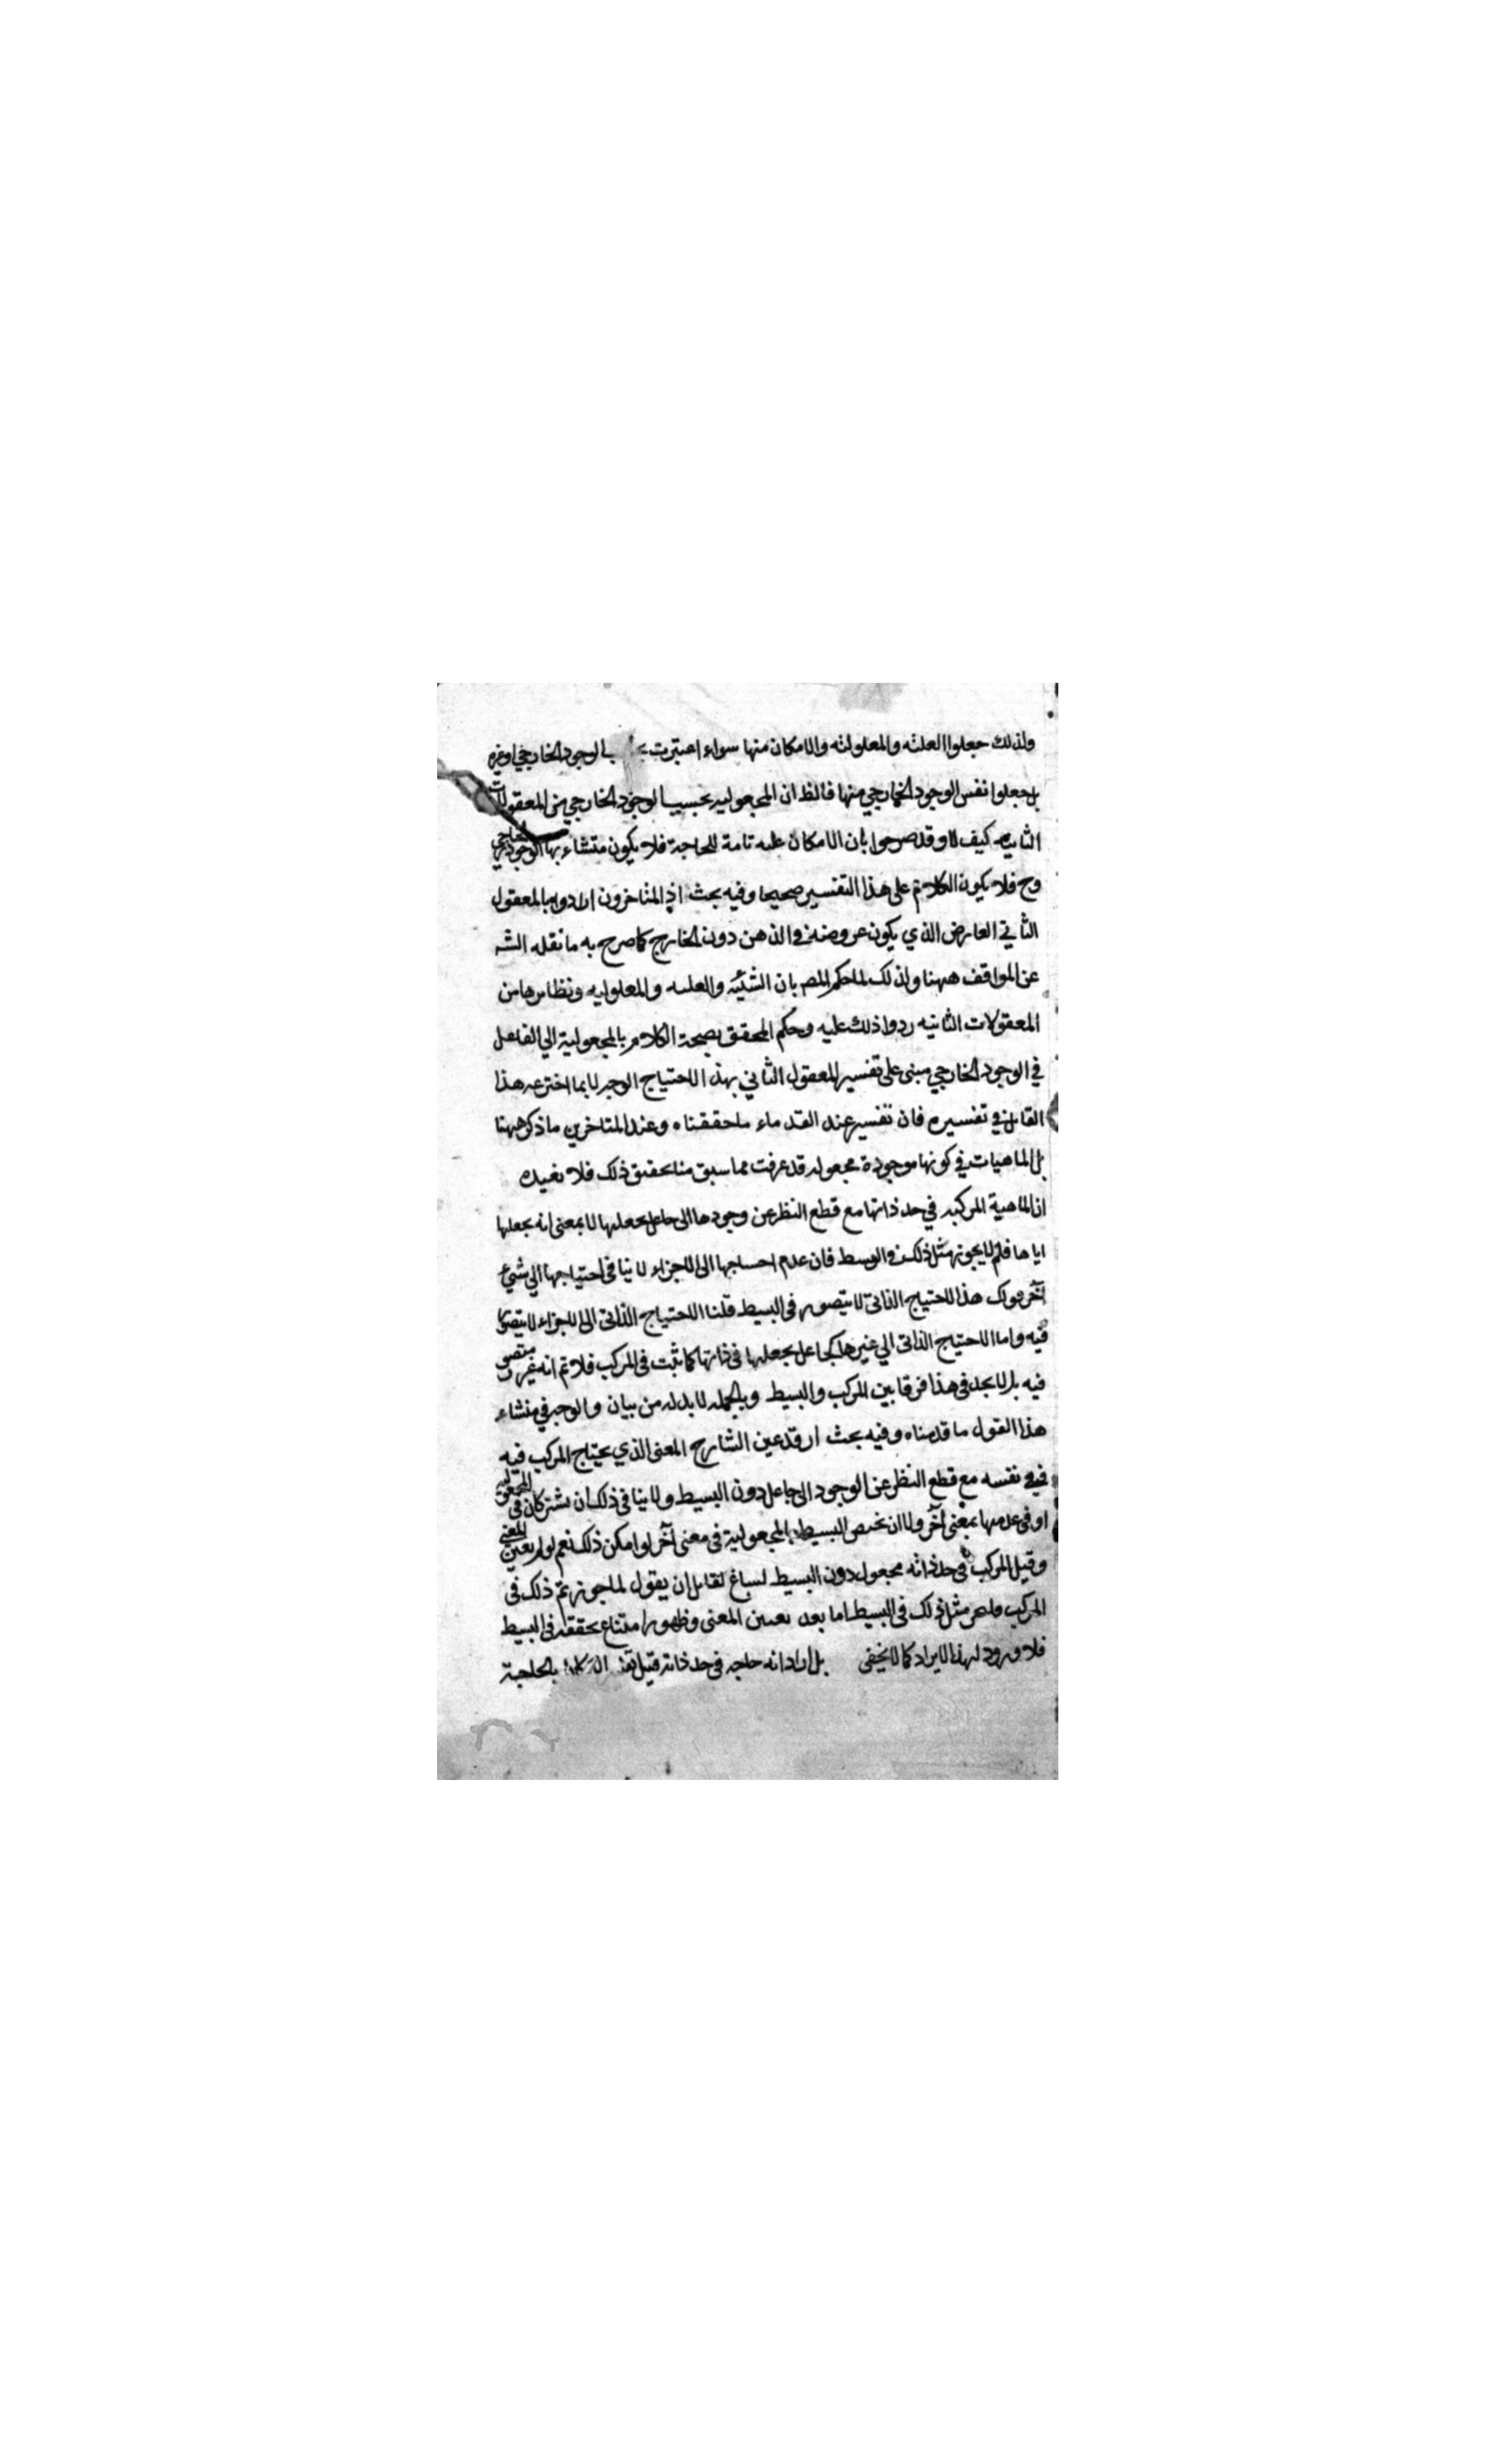 ولذلك جعلوا العلية والمعلولية والامكان منها سواء اعتبرت الوجود الخارجي او غيره
بل جعلوا نفس الوجود الخارجي منها فالظ ان المجعولية بحسب الوجود الخارجي من المعقولات
الثانيه كيف لا وقد صرحوا بان الامكان علة تامة للحاجة فلا يكون منشاء بها الوجود الخارجي
وح فلا يكون الكلام على هذا التفسير صحيحا وفيه بحث اذ المتاخرون ارادوا بالمعقول
الثاني العارض الذي يكون عروضه في الذهن دون الخارج كما صرح به ما نقله الشه
عن المواقف ههنا ولذلك لما حكم المص بان الشيئية والعليه والمعلوليه ونظايرها من
المعقولات الثانيه ردوا ذلك عليه وحكم المحقق بصحة الكلام بالمجعولية الي الفاعل
في الوجود الخارجي مبنى على تفسير المعقول الثاني بهذا الاحتياج الوجه لا بما اخترعه هذا
القايل في تفسيره فان تفسيره عند القدماء ما حققناه وعند المتاخرين ما ذكر ههنا
بل الماهيات في كونها موجودة مجعوله قد عرفت مما سبق منا تحقيق ذلك فلا نعيده
ان الماهية المركبه في حد ذاتها مع قطع النظر عن وجودها الى جاعل يجعلها لا بمعنى انه يجعلها
اياها فلم لا يجوز مثل ذلك في البسيط فان عدم احتياجها الى الاجزاء لا ينافى احتياجها الي شيئ
آخر قولك هذا الاحتياج الذاتى لا يتصور فى البسيط قلنا الاحتياج الذاتى الى الاجزاء لا يتصور
فيه واما الاحتياج الذاتى الي غيرها كجاعل يجعلها فى ذاتها كما ثبت فى المركب فلا تم انه غير متصور
فيه بل لا نجد فى هذا فرقا بين المركب والبسيط وبالجمله لا بد له من بيان والوجه في منشاء
هذا القول ما قدمناه وفيه بحث اذ قد عين الشارح المعنى الذي يحتاج المركب فيه
في نفسه مع قطع النظر عن الوجود الى جاعل دون البسيط ولا ينافى ذلك ان يشتركان فى المجعوليه
او فى عدمها بمعنى آخر ولا ان يختص البسيط بالمجعولية فى معنى آخر لو امكن ذلك نعم لو لم يعين المعنى
وقيل المركب فى حد ذاته مجعول دون البسيط لساغ لقايل ان يقول لما جوزتم ذلك فى
المركب فليجز مثل ذلك فى البسيط اما بعد تعيين المعنى وظهور امتناع تحققه فى البسيط
فلا ورود لهذا الايراد كما لا يخفى بل اراد انه حاجه فى حد ذاته قيل بالحاجة